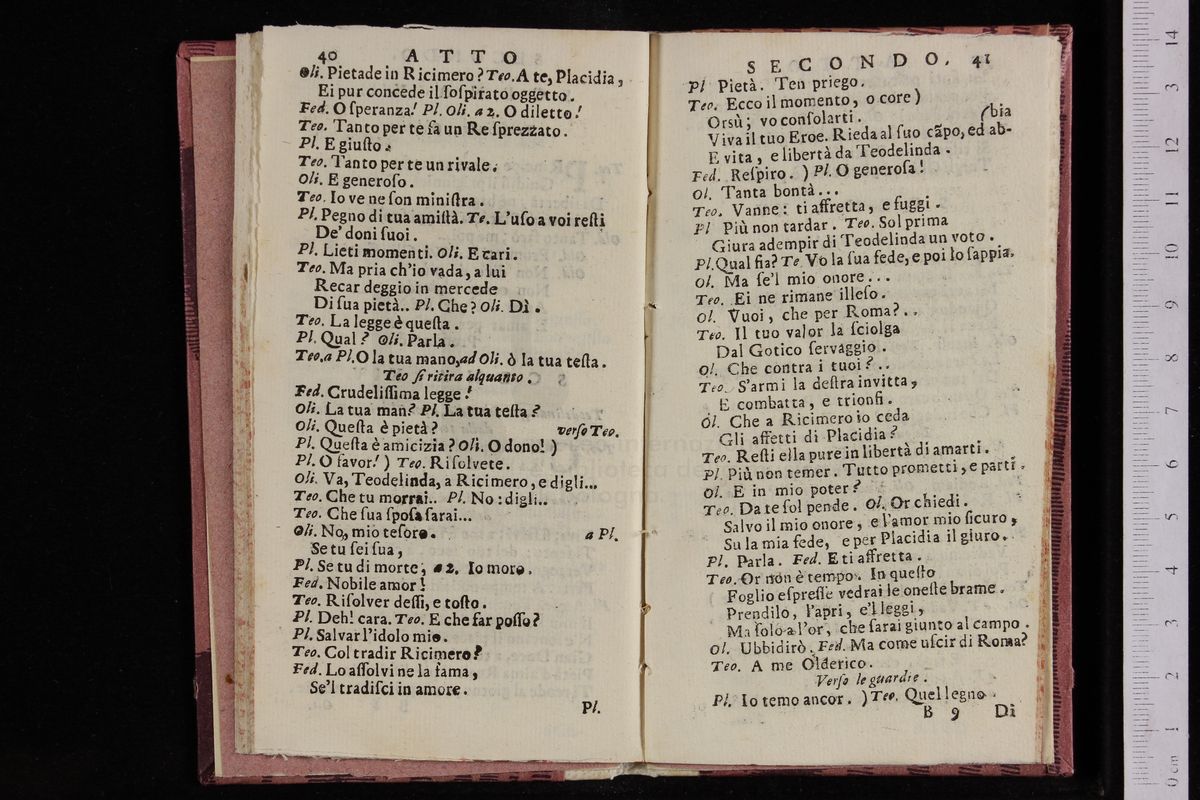 40 ATTO
Oli. Pietade in Ricimero? Teo. A te, Placidia,
Ei pur concede il ſoſpirato oggetto.
Fed. O ſperanza! Pl. Oli. a 2. O diletto!
Teo. Tanto per te fa un Re ſprezzato.
Pl. E giuſto.
Teo. Tanto per te un rivale.
Oli. E generoſo.
Teo. Io ve ne ſon miniſtra.
Pl. Pegno di tua amiſtà. Te. L'uſo a voi reſti
De' doni ſuoi.
Pl. Lieti momenti. Oli. E cari.
Teo. Ma pria ch'io vada, a lui
Recar deggio in mercede
Di ſua pietà.. Pl. Che? Oli. Dì.
Teo. La legge è queſta.
Pl. Qual? Oli. Parla.
Teo. a Pl. O la tua mano, ad Oli. ò la tua teſta.
Teo ſi ritira alquanto.
Fed. Crudeliſſima legge!
Oli. La tua man? Pl. La tua teſta?
Oli. Queſta è pietà? verſo Teo.
Pl. Queſta è amicizia? Oli. O dono! )
Pl. O favor! ) Teo. Riſolvete.
Oli. Va, Teodelinda, a Ricimero, e digli...
Teo. Che tu morrai.. Pl. No: digli..
Teo. Che ſua ſpoſa ſarai...
Oli. No, mio teſoro. a Pl.
Se tu ſei ſua,
Pl. Se tu di morte, a 2. Io moro.
Fed. Nobile amor!
Teo. Riſolver deſſi, e toſto.
Pl. Deh! cara. Teo. E che far poſſo?
Pl. Salvar l'idolo mio.
Teo. Col tradir Ricimero?
Fed. Lo aſſolvi ne la fama,
Se'l tradiſci in amore.
Pl.
SECONDO. 41
Pl Pietà. Ten priego.
Teo. Ecco il momento, o core)
Orsù; vo conſolarti. (bia
Viva il tuo Eroe. Rieda al ſuo cãpo, ed ab-
E vita, e libertà da Teodelinda.
Fed. Reſpiro. ) Pl. O generoſa!
Ol. Tanta bontà...
Teo. Vanne: ti affretta, e fuggi.
Pl Più non tardar. Teo. Sol prima
Giura adempir di Teodelinda un voto.
Pl. Qual fia? Te. Vò la ſua fede, e poi lo ſappia.
Ol. Ma ſe'l mio onore...
Teo. Ei ne rimane illeſo.
Ol. Vuoi, che per Roma?..
Teo. Il tuo valor la ſciolga
Dal Gotico ſervaggio.
Ol. Che contra i tuoi?..
Teo. S'armi la deſtra invitta,
E combatta, e trionfi.
Ol. Che a Ricimero io ceda
Gli affetti di Placidia?
Teo. Reſti ella pure in libertà di amarti.
Pl. Più non temer. Tutto prometti, e parti.
Ol. E in mio poter?
Teo. Da te ſol pende. Ol. Or chiedi.
Salvo il mio onore, e l'amor mio ſicuro,
Su la mia fede, e per Placidia il giuro.
Pl. Parla. Fed. E ti affretta.
Teo. Or non è tempo. In queſto
Foglio eſpreſſe vedrai le oneſte brame.
Prendilo, l'apri, e'l leggi,
Ma ſolo a l'or, che ſarai giunto al campo.
Ol. Ubbidirò. Fed. Ma come uſcir di Roma?
Teo. A me Olderico.
Verſo le guardie.
Pl. Io temo ancor. ) Teo. Quel legno
B 9 Dì